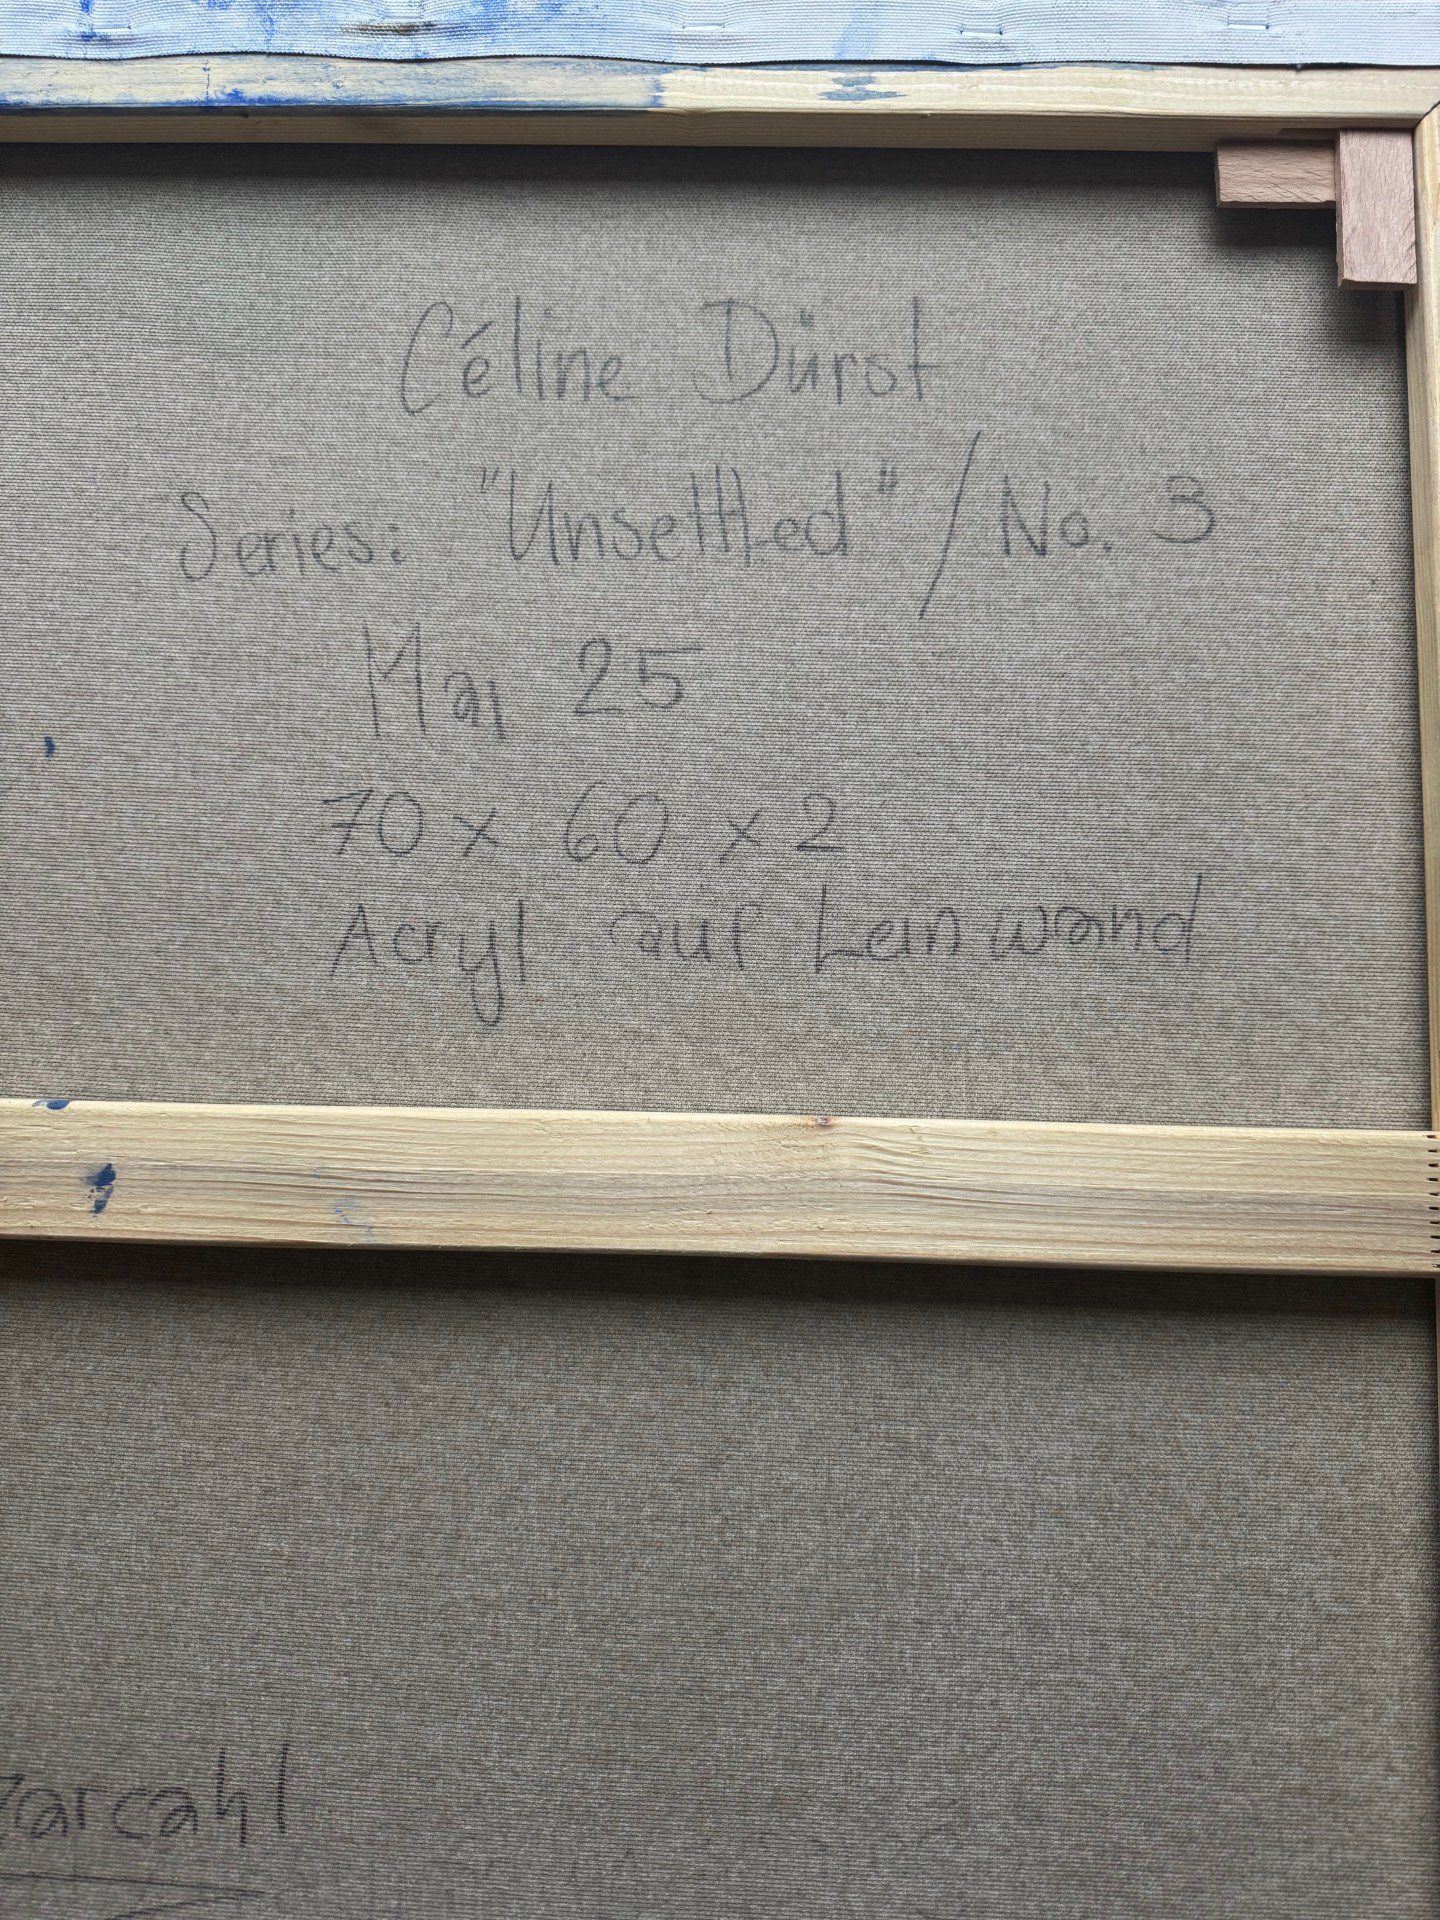 Céline Dürst
Series: "Unsettled" / No. 3
Mai 25
70 x 60 x 2
Acryl auf Leinwand